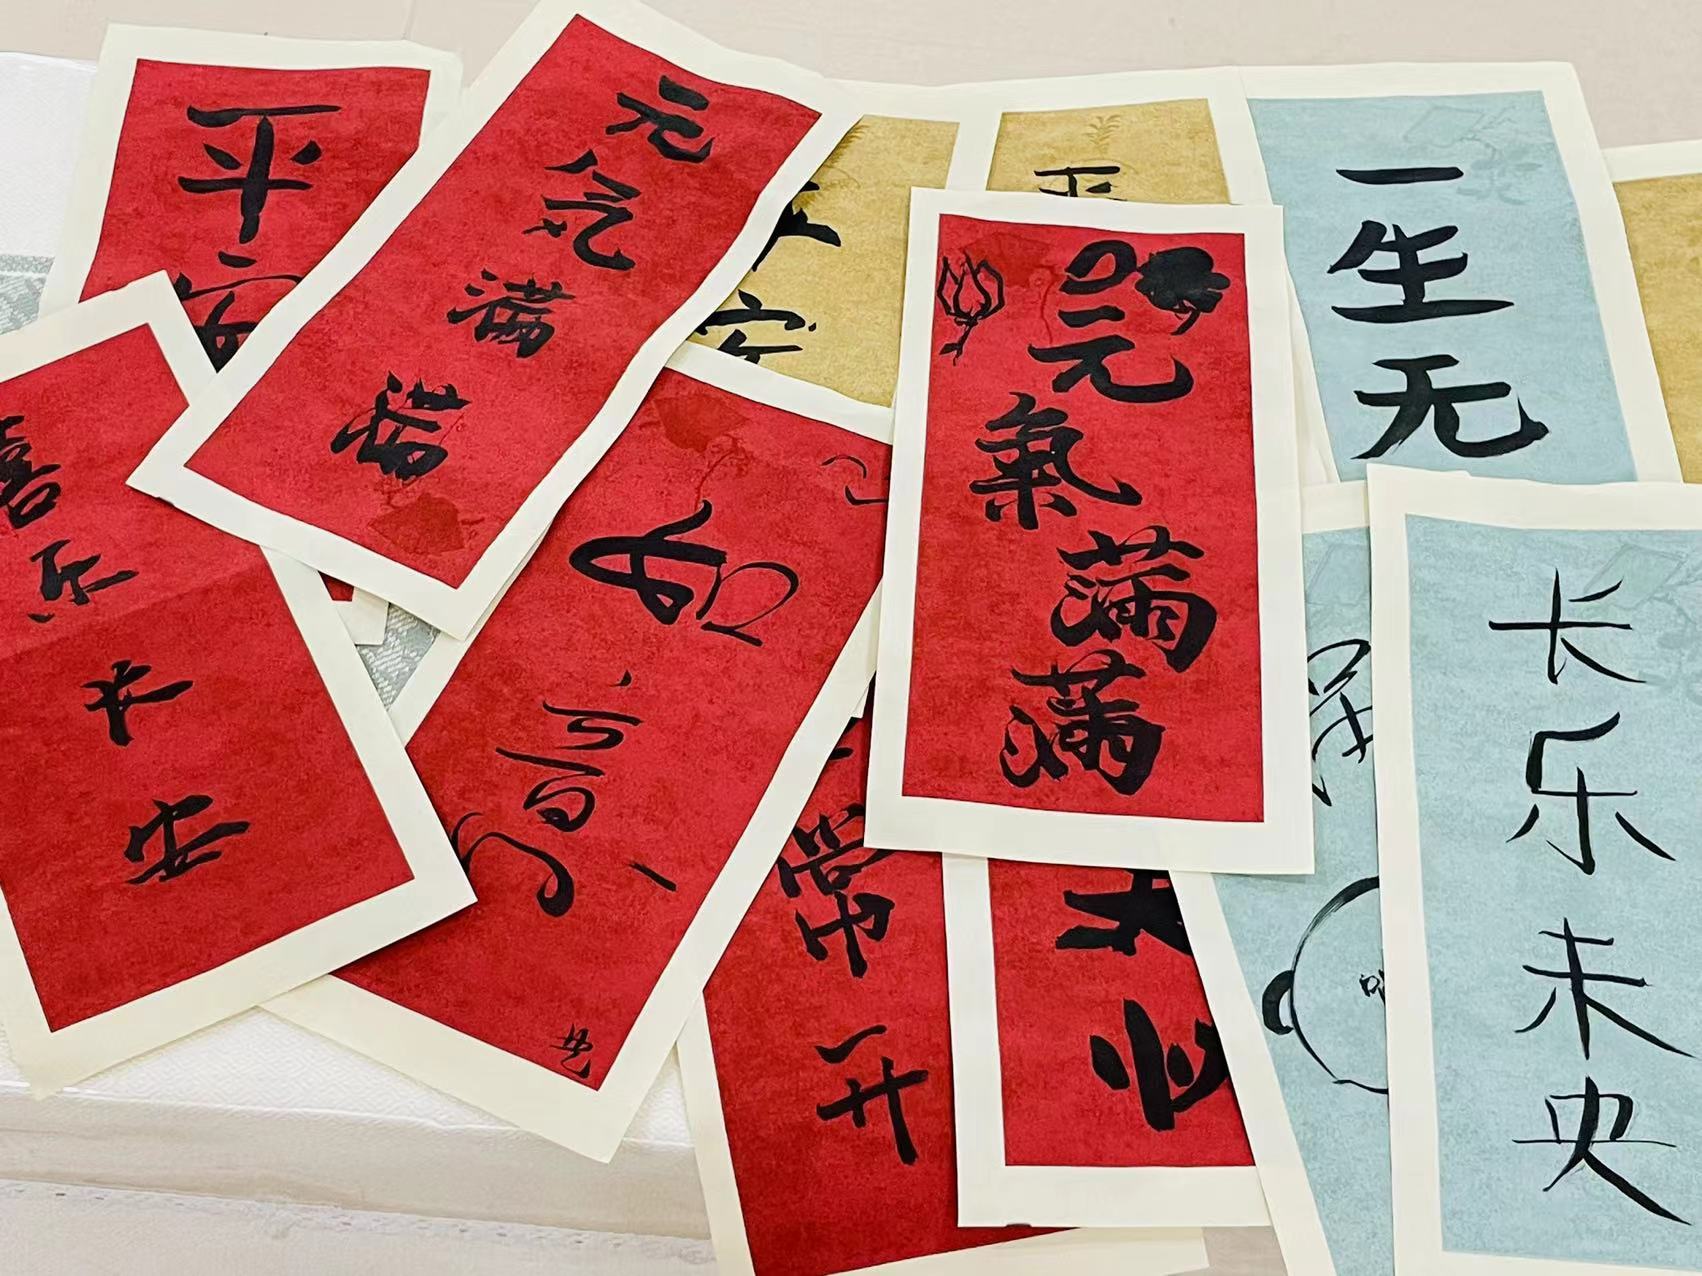 平安
元气满满
平安
一生无
元氣满满
喜乐长安
如意
常开
长乐未央